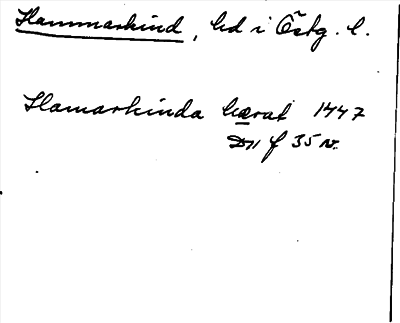 Hammarkind, hd i Östg. l.
Hamarkinda hærat 1447
D11 f 35 v.